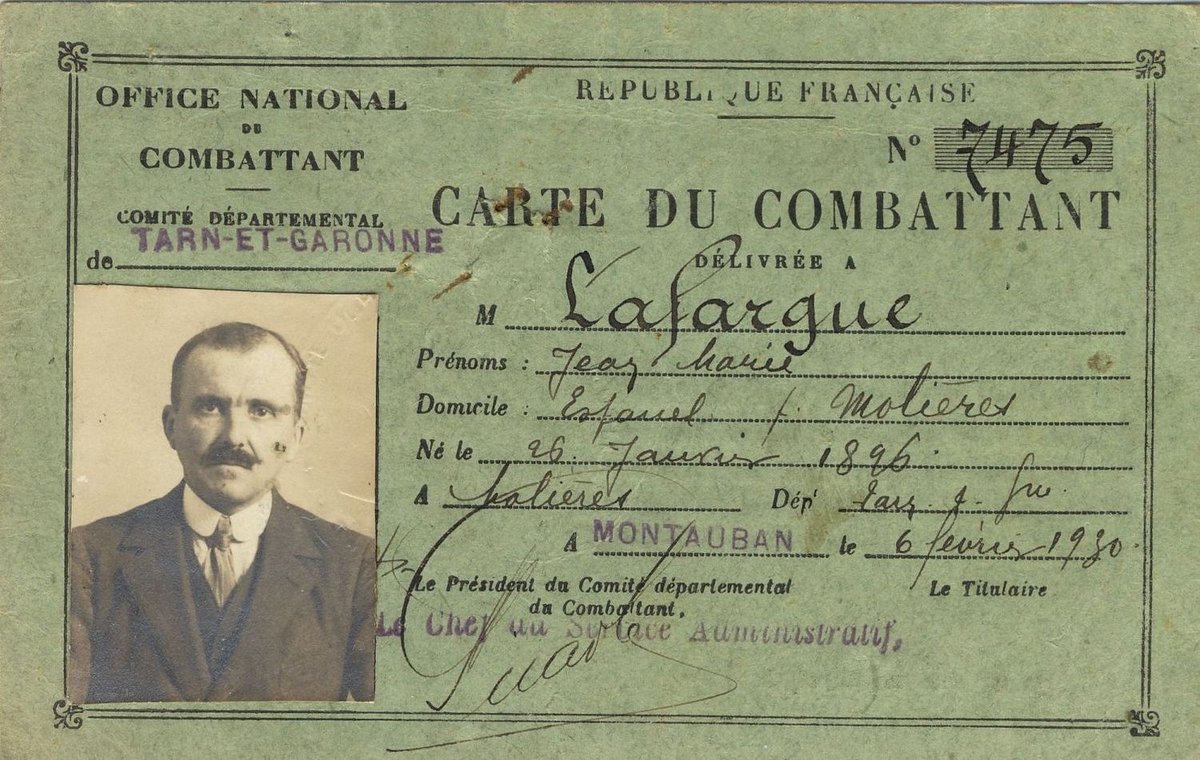 OFFICE NATIONAL
DU
COMBATTANT
COMITÉ DÉPARTEMENTAL
de TARN-ET-GARONNE
RÉPUBLIQUE FRANÇAISE
N° 7475
CARTE DU COMBATTANT
DÉLIVRÉE A
M Lafargue
Prénoms : Jean Marie
Domicile : Espanel p. Molières
Né le 26 Janvier 1896
A Molières Dépt Tarn & Gne
A MONTAUBAN le 6 février 1930
Le Président du Comité départemental
du Combattant,
Le Titulaire
Le Chef du Service Administratif,